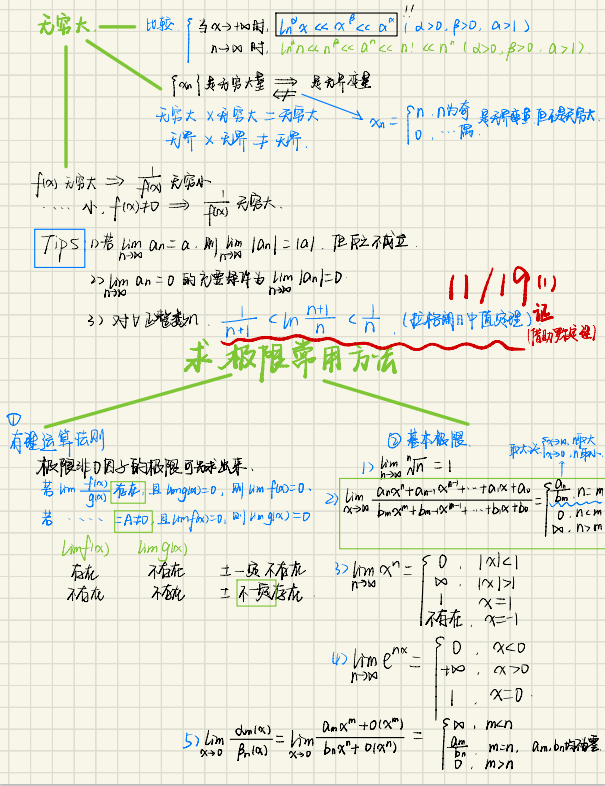 无穷大
比较 当x→+∞时, lnᵅx << xᵝ << aˣ (α>0, β>0, a>1) !!
n→∞ 时, lnᵅn << nᵝ << aⁿ << n! << nⁿ (α>0, β>0, a>1).
{xn}是无穷大量 ⇒ 是无界变量
无穷大 × 无穷大 = 无穷大
无界 × 无界 ≠ 无界.
xn = { n, n为奇 是无界变量,但不是无穷大.
0, ... 偶
f(x) 无穷大 ⇒ 1/f(x) 无穷小
..... 小, f(x)≠0 ⇒ 1/f(x) 无穷大.
Tips 1) 若 lim n→∞ an = a, 则 lim n→∞ |an| = |a|. 但反之不成立.
2) lim n→∞ an = 0 的充要条件为 lim n→∞ |an| = 0
3) 对∀正整数n, 1/(n+1) < ln (n+1)/n < 1/n. (拉格朗日中值定理)
11/19 (1)
证
求极限常用方法
①
有理运算法则
极限非0因子的极限可先求出来.
若 lim f(x)/g(x) 存在, 且 lim g(x)=0, 则 lim f(x)=0.
若 ..... =A≠0, 且 lim f(x)=0, 则 lim g(x)=0
lim f(x) lim g(x)
存在 不存在 ± 一定不存在
不存在 不存在 ± 不一定存在.
② 基本极限.
1) lim n→∞ ⁿ√n = 1
x→∞, 取大
x→0,
2) lim x→∞ (anxⁿ+an-1xⁿ⁻¹+...+a1x+a0)/(bmxᵐ+bm-1xᵐ⁻¹+...+b1x+b0) = { an/bm, n=m
0, n<m
∞, n>m
3) lim n→∞ xⁿ = { 0, |x|<1
∞, |x|>1
1, x=1
不存在, x=-1
4) lim n→∞ eⁿˣ = { 0, x<0
+∞, x>0
1, x=0.
5) lim x→0 αm(x)/βn(x) = lim x→0 (amxᵐ+o(xᵐ))/(bnxⁿ+o(xⁿ)) = { ∞, m<n
am/bn, m=n, am,bn均
0, m>n